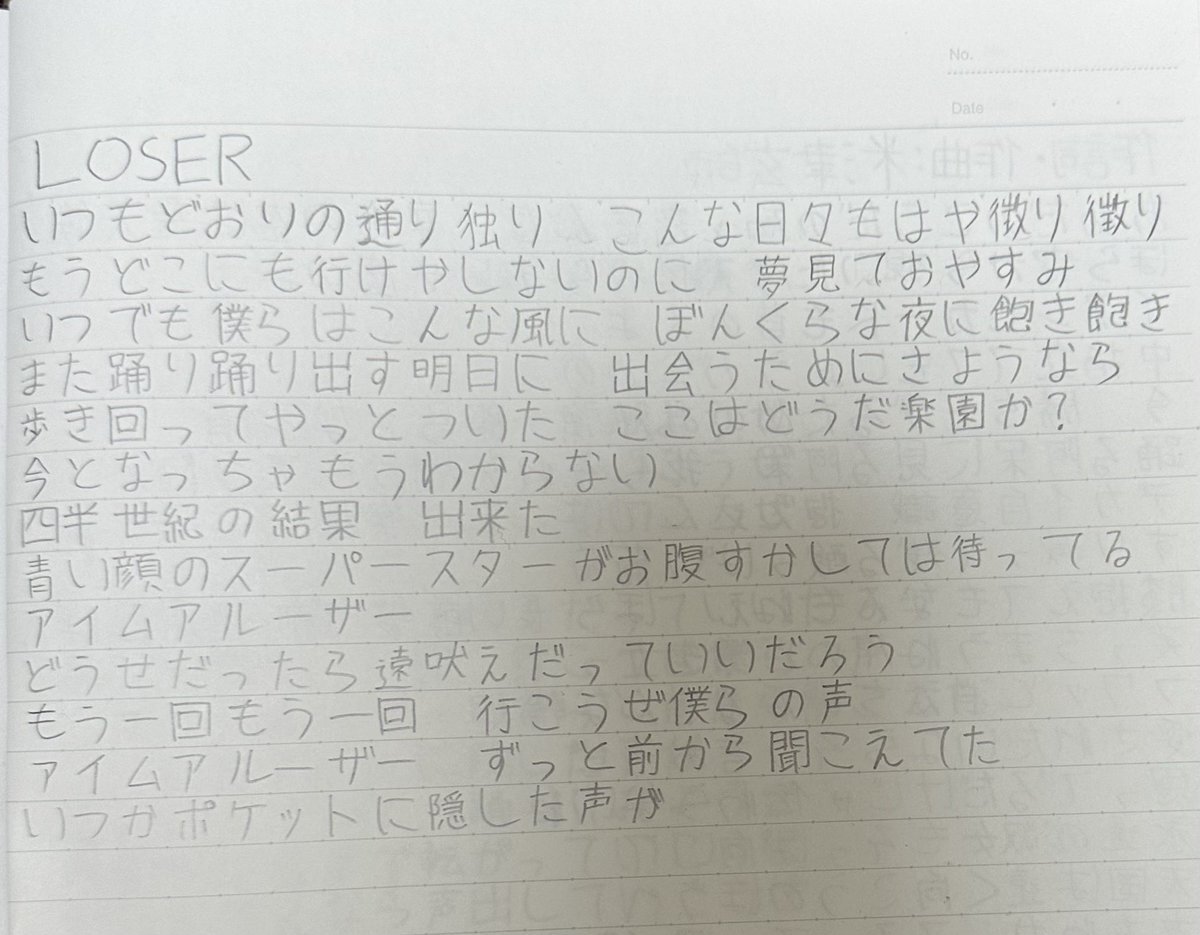 No.
Date
LOSER
いつもどおりの通り独り　こんな日々もはや徴り徴り
もうどこにも行けやしないのに　夢見ておやすみ
いつでも僕らはこんな風に　ぼんくらな夜に飽き飽き
また踊り踊り出す明日に　出会うためにさようなら
歩き回ってやっとついた　ここはどうだ楽園か?
今となっちゃもうわからない
四半世紀の結果　出来た
青い顔のスーパースターがお腹すかしては待ってる
アイムアルーザー
どうせだったら遠吠えだっていいだろう
もう一回もう一回　行こうぜ僕らの声
アイムアルーザー　ずっと前から聞こえてた
いつかポケットに隠した声が